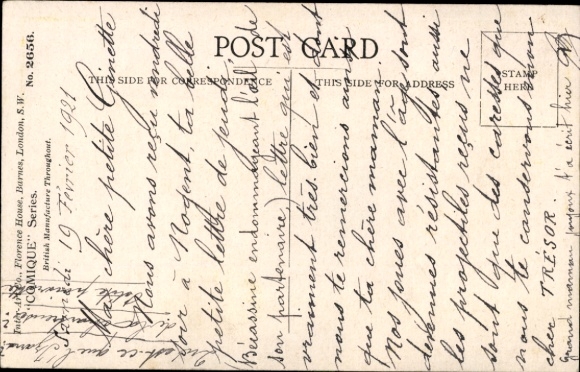 POST CARD
THIS SIDE FOR CORRESPONDENCE
THIS SIDE FOR ADDRESS
STAMP
HERE
Inter-Art Co., Florence House, Barnes, London, S.W.
"COMIQUE" Series.
British Manufacture Throughout.
No. 2656.
Samedi 19 Février 1921
Ma chère petite Ginette
Nous avons reçu vendredi
soir à Nogent, ta belle
petite lettre de jeudi,
(Bécassine endommageant l'œil de
son partenaire) lettre qui est
vraiment très bien et dont
nous te remercions ainsi
que ta chère maman.
Nos joues avec l'âge sont
devenues résistantes aussi
les projectiles reçus ne
sont que des caresses que
nous te conservons mon
cher TRÉSOR.
Grand maman Joyoux t'a écrit hier
Qu'est-ce que l'
de la